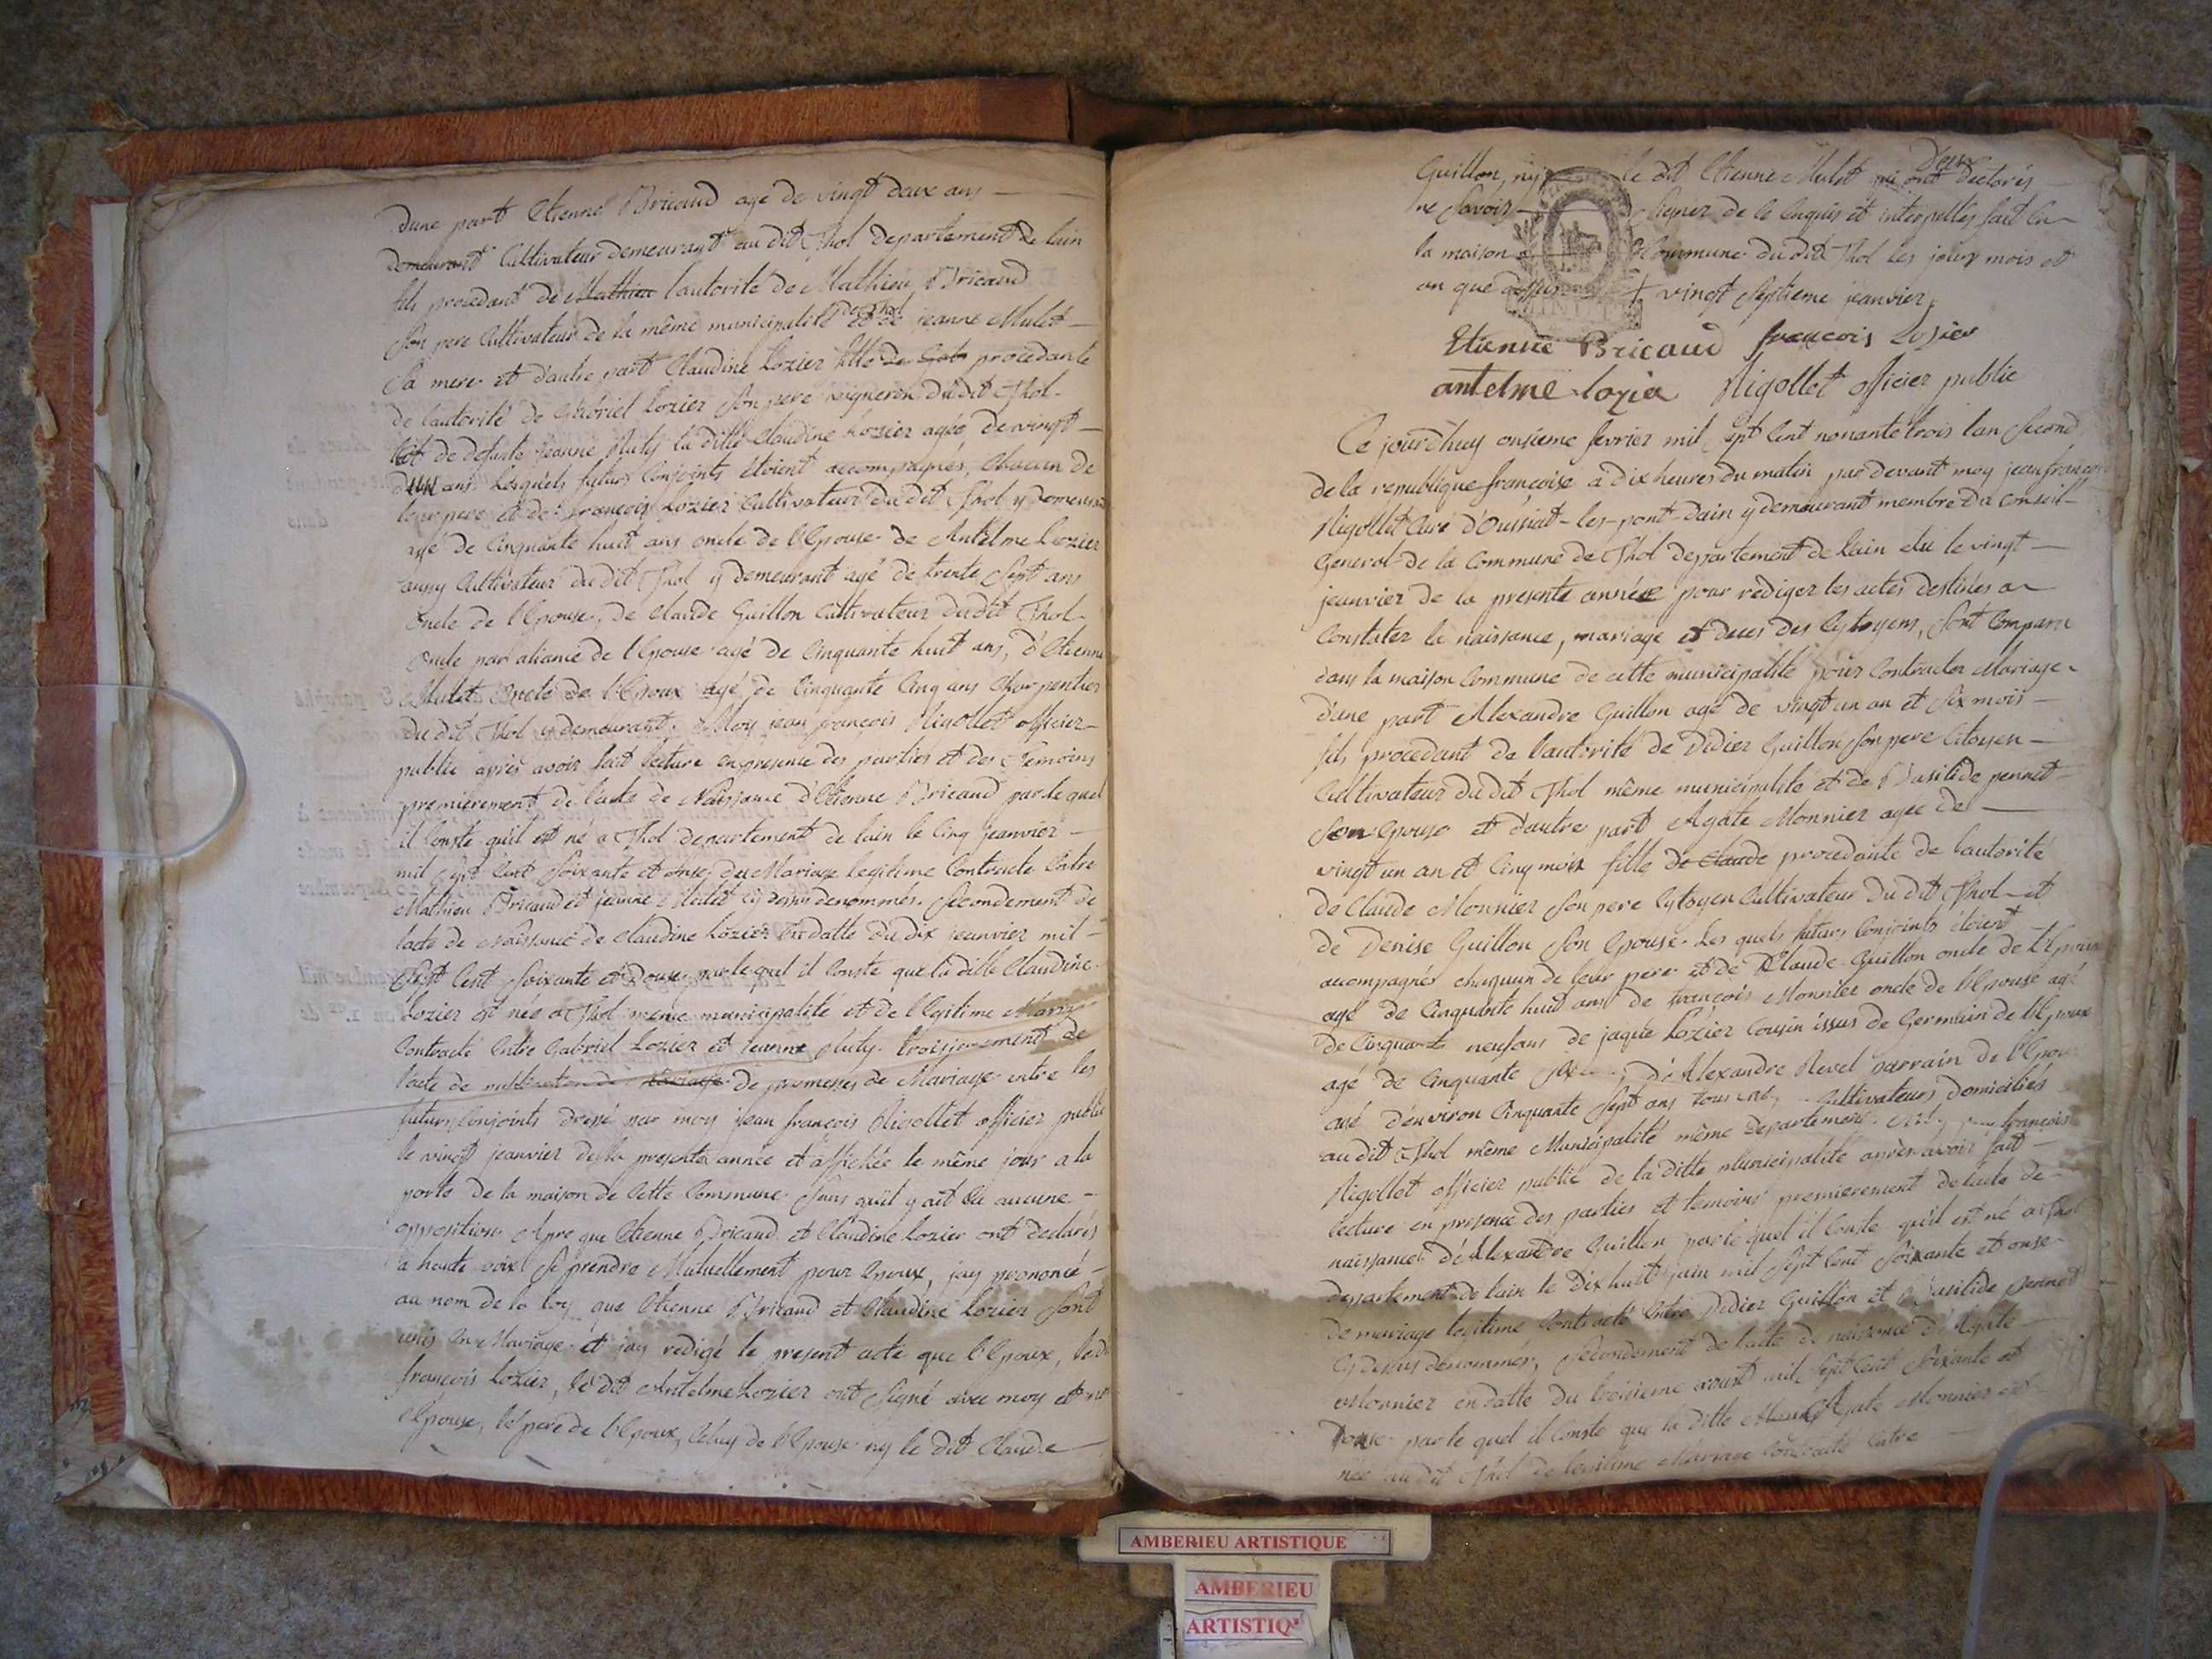 Dune part Etienne Bricaud agé de vingt deux ans
Demeurant Cultivateur demeurant au dit Thol departement de lain
fils procedant de Mathieu l'autorité de Mathieu Bricaud
Son pere Cultivateur de la même municipalité de Thol et de jeanne Mulet
Sa mere et d'autre part Claudine Lozier fille de Gab procedante
de l'autorité de Gabriel Lozier Son pere vigneron du dit Thol
et de defunte jeanne Muty la ditte Claudine Lozier agée de vingt
un ans Lesquels futurs Conjoints étoient accompagnés, Chacun de
leur pere et de françois Lozier Cultivateur du dit Thol y demeurant
agé de Cinquante huit ans oncle de l'Epouse de Antelme Lozier
aussy Cultivateur du dit Thol y demeurant agé de trente Sept ans
oncle de l'Epouse, de Claude Guillon Cultivateur du dit Thol
oncle par aliance de l'Epouse agé de Cinquante huit ans, d'Etienne
Mulet Oncle de l'Epoux agé de Cinquante Cinq ans Charpentier
du dit Thol y demeurant. Moy jean françois Nigollet officier
public après avoir fait lecture en presence des parties et des Temoins
premierement de l'acte de Naissance d'Etienne Bricaud par le quel
il Conste qu'il est né a Thol departement de lain le Cinq jeanvier
mil Sept Cent Soixante et onse, du Mariage legitime Contracté Entre
Mathieu Bricaud et jeanne Mulet cy dessus denommés. Secondement de
lacte de Naissance de Claudine Lozier En datte du dix jeanvier mil
Sept Cent Soixante et Douse par le quel il Conste que la ditte Claudine
Lozier est née a Thol meme municipalité et de legitime Mariage
Contracté Entre Gabriel Lozier et jeanne Muty. troisiemement de
l'acte de publication de Mariage de promesses de Mariage entre les
futurs Conjoints dressé par moy jean françois Nigollet officier public
le vingt jeanvier de la presente année et affichée le même jour a la
porte de la maison de Cette Commune Sans qu'il y ait Eu aucune
opposition Apre que Etienne Bricaud et Claudine Lozier ont declarés
a haute voix Se prendre Mutuellement pour Epoux, jay prononcé
au nom de la Loy que Etienne Bricaud et Claudine Lozier Sont
unis En Mariage et jay redigé le present acte que l'Epoux, le dit
françois Lozier, le dit Antelme Lozier ont Signé avec moy et non
l'Epouse, le pere de l'Epoux, Celuy de l'Epouse ny le dit Claude
Guillon, ny le dit Etienne Mulet qui ont declarés
ne Savoir Signer de ce Enquis et interpellés fait En
la maison Commune du dit Thol les jour mois et
an que dessus + vingt Septieme jeanvier
Etienne Bricaud françois Losier
antelme lozier Nigollet officier public
Ce jourdhuy onsieme fevrier mil Sept Cent nonante trois lan Second
de la republique françoise a dix heures du matin par devant moy jean françois
Nigollet Curé d'Oussiat-les-pont-Dain y demeurant membre du Conseil
General de la Commune de Thol departement de lain elu le vingt
jeanvier de la presente année pour rediger les actes destinés a
Constater la naissance, mariage et deces des Cytoyens, Sont Comparu
dans la maison Commune de cette municipalité pour Contracter Mariage
d'une part Alexandre Guillon agé de vingt un an et Six mois
fils procedant de l'autorité de Didier Guillon Son pere Citoyen
Cultivateur du dit Thol même municipalité et de Basilide pennet
Son Epouse et d'autre part Agate Monnier agée de
vingt un an et Cinq mois fille de Claude procedante de l'autorité
de Claude Monnier Son pere Cytoyen Cultivateur du dit Thol et
de Denise Guillon Son Epouse. Les quels futurs Conjoints étoient
acompagnés chaqun de leur pere et de Claude Guillon oncle de l'Epoux
agé de Cinquante huit ans de françois Monnier oncle de l'Epouse agé
de Cinquante neuf ans de jaque Lozier Cousin issus de Germain de l'Epoux
agé de Cinquante d'Alexandre Revel parrain de l'Epoux
agé d'environ Cinquante Sept ans tous Cultivateurs domiciliés
au dit Thol même Municipalité même departement. françois
Nigollet officier public de la ditte Municipalité après avoir fait
lecture en presence des parties et temoins premierement de l'acte de
naissance d'Alexandre Guillon par le quel il Conste qu'il est né a Thol
departement de lain le Dix huit juin mil Sept Cent Soixante et onse
de mariage legitime Contracté Entre Didier Guillon et Basilide pennet
Cy dessus denommés, Secondement de l'acte de naissance d'Agate
Monnier en datte du troisieme aoust mil Sept Cent Soixante et
Douse par le quel il Conste que la ditte Agate Monnier est
née au dit Thol de legitime Mariage Contracté Entre
AMBERIEU ARTISTIQUE
AMBERIEU
ARTISTIQ